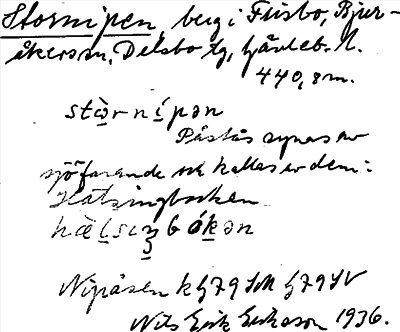 Stornipen, berg i Frisbo, Bjur-
åkers sn, Delsbo tg, Gävleb. l.
440,8 m.
stòrnípən
Påstås synas av
sjöfarande och kallas av dem:
Hälsingbocken
hæ̀lsiŋbókən
Nipåsen k G79 SM G79 SV
Nils Erik Eriksson 1936.